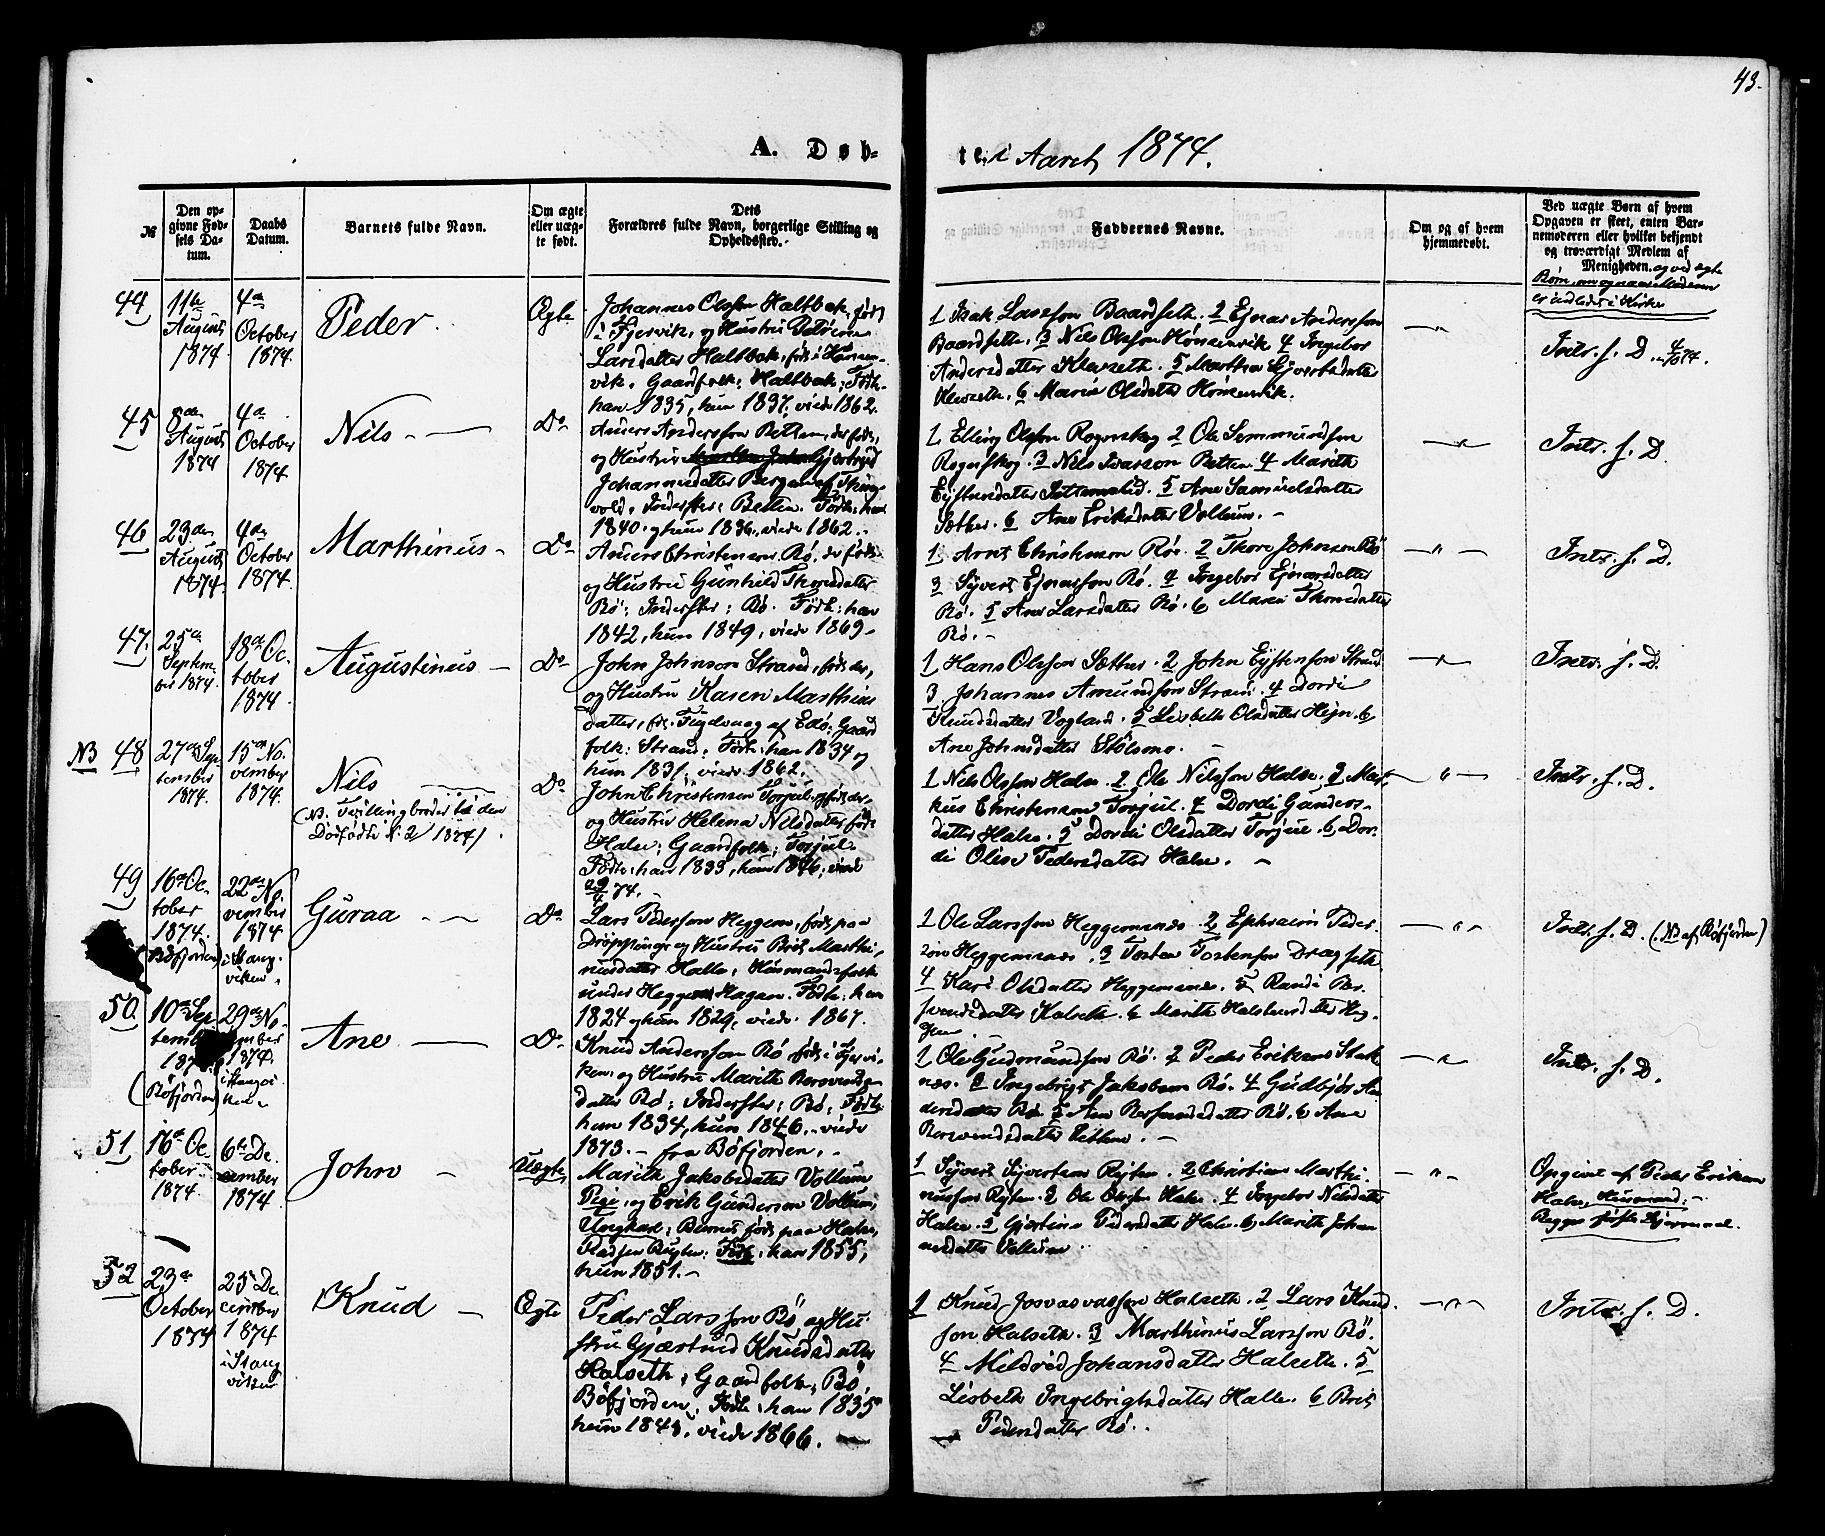 43.
A. Døb-
te i Aaret 1874.
№
Den op-
givne Fød-
sels Da-
tum.
Daabs
Datum.
Barnets fulde Navn.
Om ægte
eller uæg-
te født.
Dets
Forældres fulde Navn, borgerlige Stilling og
Opholdssted.
Faddernes Navne.
Om og af hvem
hjemmedøbt.
Ved uægte Børn af hvem
Opgaven er skeet, enten Bar-
nemoderen eller hvilket bekjendt
og troværdigt Medlem af
Menigheden. og ved ægte
Børn, om Moderen
er indledet i Kirke
44
11te
August
1874.
4de
October
1874.
Peder
Ægte
Johannes Olsson Haltbak, født
i Fjervik, og Hustru
Larsdatter Haltbak, født i
vik. Gaardfolk: Haltbak; Født:
han 1835, hun 1837, viede 1862.
1 Isak Larsson Baardseth. 2 Ejnar Andersson
Baardseth. 3 Nils Olsson 4 Ingebor
Andersdatter 5 Marthe
6 Marie Olsdatter
Intr. f. D. 4/10 74.
45
8de
August
1874
4de
October
1874
Nils
Do
Anders Andersson Betten, der født,
og Hustru Gjertrud
Johannesdatter Bergem af Thing-
vold, Inderster: Betten. Født: han
1840 og hun 1836, viede 1862.
1 Elling Olsson Rogenskog 2 Ole Semmundson
Rogenskog. 3 Nils Ivarson Betten. 4 Marith
5 Ane Samuelsdatter
Sæther. 6 Ane Eriksdatter Vollum.
Intr. f. D.
46
23de
August
1874.
4de
October
1874.
Marthinus
Do
Anders Christensen Rø, der født
og Hustru Gunhild Thoresdatter
Rø: Inderster: Rø. Født: han
1842, hun 1849, viede 1869.
1 Arnt Christensen Rø. 2 Thore Johnsen Rø
3 Syvert Ejnarsson Rø. 4 Ingebor Ejnarsdatter
Rø. 5 Ane Larsdatter Rø. 6 Maren Thoresdatter
Rø.
Intr. f. D.
47.
25de
Septem-
ber 1874.
18de Oc-
tober
1874.
Augustinus
Do
John Johnson Strand, født der,
og Hustru Karen Marthins
datter, fr. af Edø: Gaard
folk: Strand: Født: han 1834 og
hun 1831, viede 1862.
1 Hans Olsson Sæther. 2 John Ejstenson Strand
3 Johannes Amundson Strand. 4 Dordi
Knudsdatter Vogland. 5 Lisbeth Olsdatter 6
Ane Johnsdatter Stølsmo.
Intr. f. D.
NB 48
27de Sep-
tember
1874.
15de No-
vember
1874.
Nils
(NB. Tvillingbroder til den
Dødfødte No 2 1874)
Do
John Christensen Torjul, født der,
og Hustru Helena Nilsdatter, født
Halse; Gaardfolk; Torjul.
Født: han 1833, hun 1846, viede
74.
1 Nils Olsson Halse. 2 Ole Nilsson Halse. 3 Mar-
kus Christensen Torjul. 4 Dordi Gunders-
datter Halse. 5 Dordi Olsdatter Torjul. 6 Dor-
di Oline Pedersdatter Halse.
Intr. f. D.
49
16de Oc-
tober
1874.
(Bøfjorden)
22de No-
vember
1874
i Stang-
viken
Guraa
Do
Lars Pederson Heggem, født paa
og Hustru Brit Marthi-
nusdatter Halle: Husmandsfolk
under Heggem Hagan. Født: han
1824 og hun 1829, viede 1867.
1 Ole Larsson Heggemsnæs. 2 Ephraim Peder-
son Heggemsnæs. 3 Torsten Torstenson Dragseth
4 Kari Olsdatter Heggemsnæs. 5 Randi Ber-
svendsdatter Kalseth. 6 Marith Halstensdatter Heg-
gem
Intr. f. D. (NB af Bøfjorden)
50
10de Sep-
tember
1874
(Bøfjorden)
29de No-
vember
1874,
i Stangvi-
ken
Ane
Do
Knud Anderson Rø født i
og Hustru Marith Bersvends-
datter Rø; Inderster; Rø; Født:
han 1834, hun 1846, viede
1873. fra Bøfjorden.
1 Ole Gudmundson Rø. 2 Peder Erikson Stok-
næs. 3 Ingebrigt Jakobsen Rø. 4 Gudbjør
datter Rø. 5 Ane Bersvendsdatter Rø. 6 Ane
Bersvendsdatter
Intr. f. D.
51
16de Oc-
tober
1874.
6te De-
cember
1874
John
Uægte
Marith Jakobsdatter Vollum
Pige, og Erik Gunderson Vollum,
Ungkarl; Barnet født paa Halse,
Født: han 1855,
hun 1851.
1 Syvert Syvertsen Rysten. 2 Christian Marthi-
nusson Rysten. 3 Ole Olsson Halse. 4 Ingebor Nilsdatter
Halse. 5 Gjertine Pedersdatter Halse. 6 Marith Johan
nesdatter Vollum
Opgivet af Peder Eriksen
Halse, Husmand;
Begges første Lejermaal.
52
23de
October
1874
25de De-
cember
1874
i Stang-
viken
Knud
Ægte
Peder Larsson Rø og Hu-
stru Gjærtrud Knudsdatter
Halseth; Gaardfolk; Rø
Bøfjorden. Født: han 1835
hun 1843, viede 1866.
1 Knud Halseth. 2 Lars Knud-
son Halseth. 3 Marthinus Larsson Rø.
4 Mildrid Johansdatter Halseth. 5
Lisbeth Ingebrigtsdatter Halle. 6 Brit
Pedersdatter Rø.
Intr. f. D.